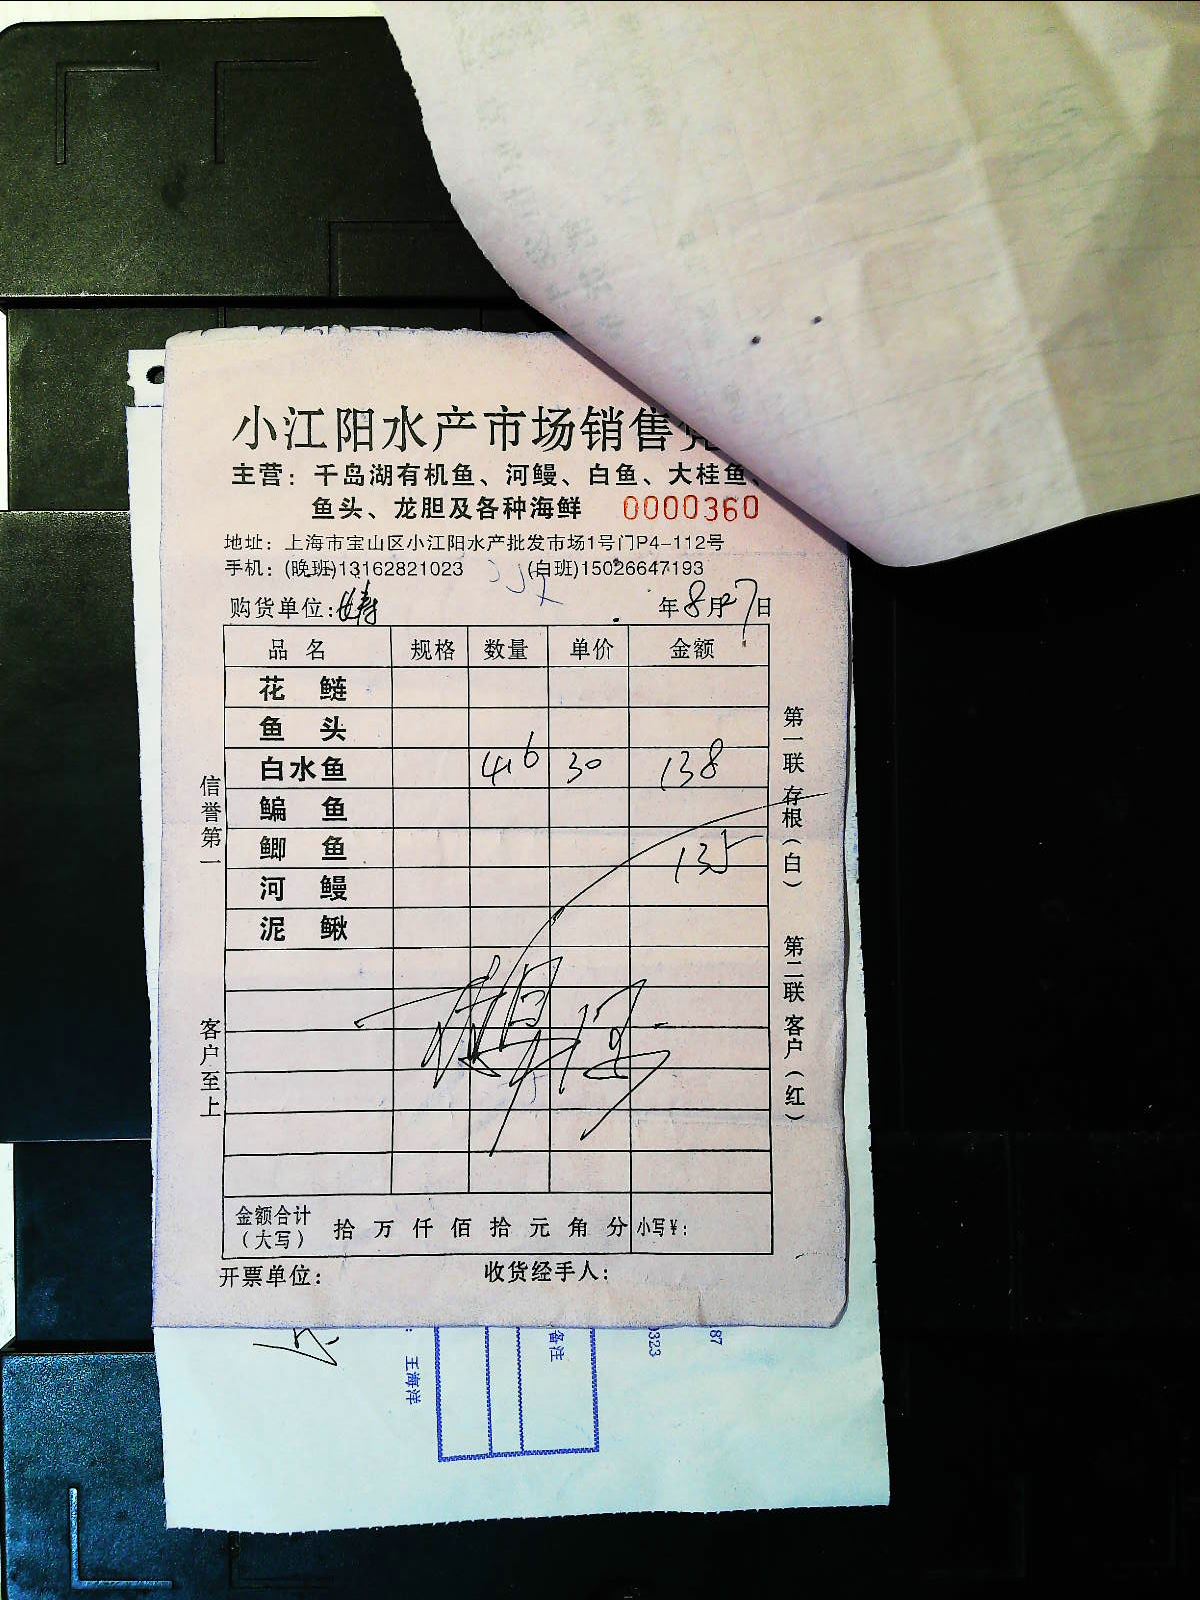 小江阳水产市场销售
主营：千岛湖有机鱼、河鳗、白鱼、大桂鱼、
鱼头、龙胆及各种海鲜 0000360
地址：上海市宝山区小江阳水产批发市场1号门P4-112号
手机：(晚班)13162821023 (白班)15026647193
购货单位： 年8月27日
品名 规格 数量 单价 金额
花鲢
鱼头
白水鱼 4.6 30 138
鳊鱼
鲫鱼 135
河鳗
泥鳅
信誉第一
客户至上
第一联 存根（白）
第二联 客户（红）
金额合计（大写） 拾 万 仟 佰 拾 元 角 分 小写¥：
开票单位： 收货经手人：
王海洋
备注
0323
87